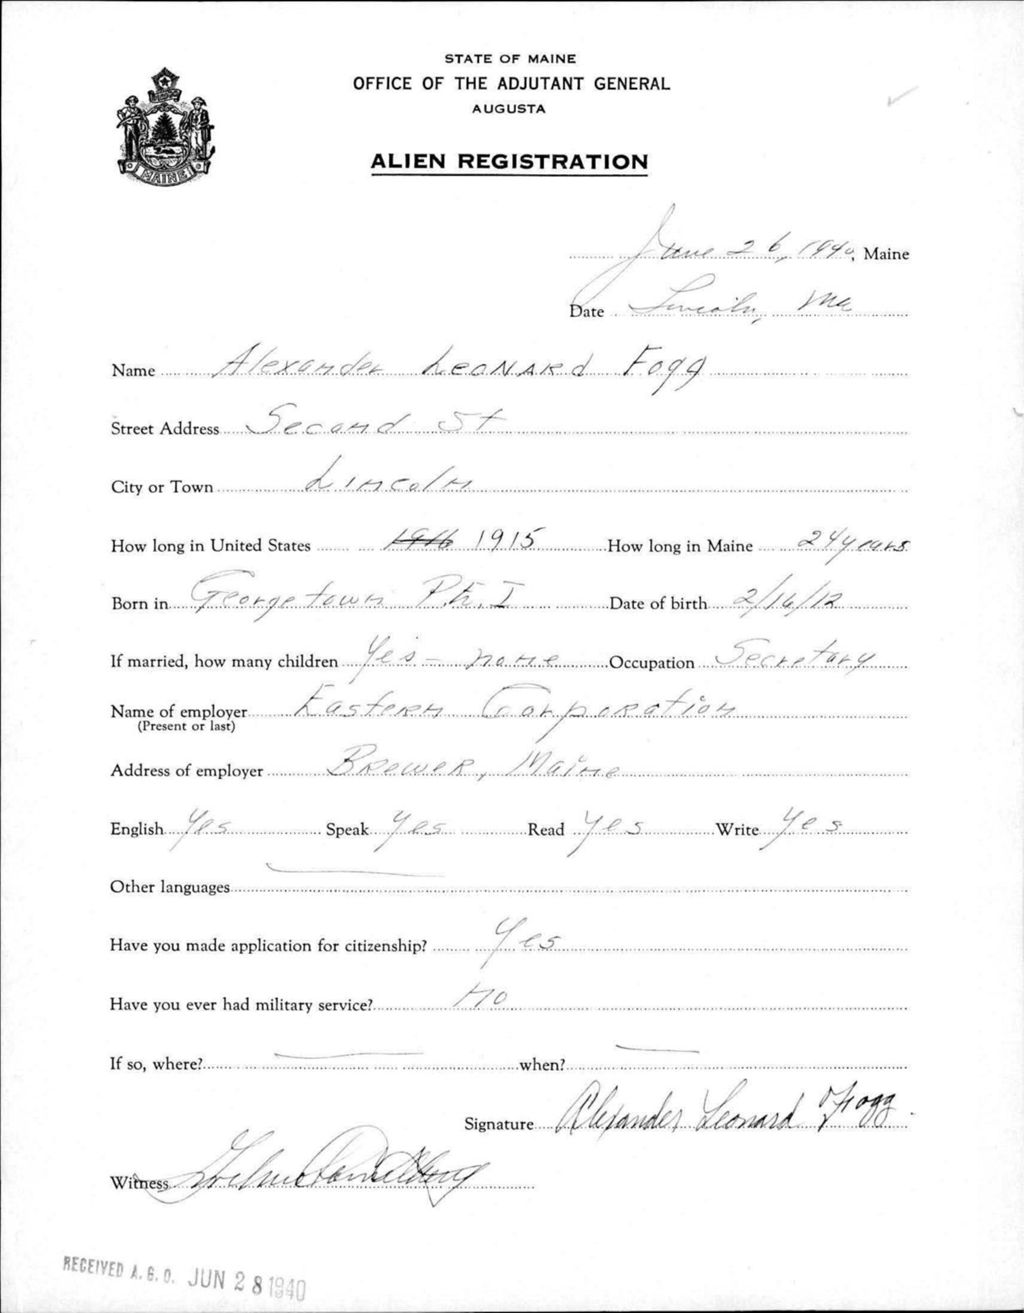 STATE OF MAINE
OFFICE OF THE ADJUTANT GENERAL
AUGUSTA
ALIEN REGISTRATION
MAINE
June 26, 1940, Maine
Date Lincoln, Me
Name Alexander Leonard Fogg
Street Address Second St
City or Town Lincoln
How long in United States 1916 1915 How long in Maine 24 years
Born in Georgetown P.E.I Date of birth 2/16/12
If married, how many children Yes - none Occupation Secretary
Name of employer Eastern Corporation
(Present or last)
Address of employer Brewer, Maine
English Yes Speak Yes Read Yes Write Yes
Other languages
Have you made application for citizenship? Yes
Have you ever had military service? no
If so, where? when?
Signature Alexander Leonard Fogg
Witness
RECEIVED A.G.O. JUN 28 1940